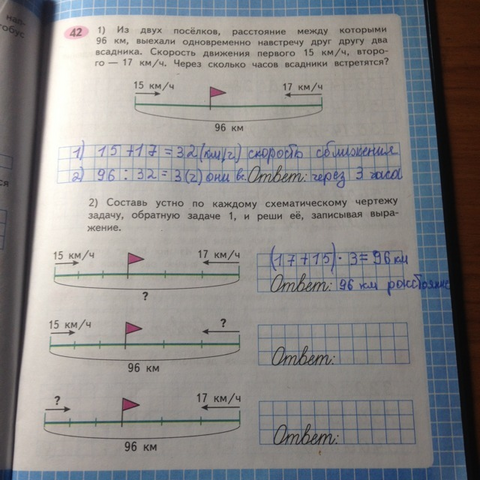 42 1) Из двух посёлков, расстояние между которыми
96 км, выехали одновременно навстречу друг другу два
всадника. Скорость движения первого 15 км/ч, второ-
го — 17 км/ч. Через сколько часов всадники встретятся?
15 км/ч 17 км/ч
96 км
1) 15+17=32(км/ч) скорость сближения
2) 96:32=3(ч) они в. Ответ: через 3 часа
2) Составь устно по каждому схематическому чертежу
задачу, обратную задаче 1, и реши её, записывая выра-
жение.
15 км/ч 17 км/ч
?
(17+15)·3=96 км
Ответ: 96 км
15 км/ч ?
96 км
Ответ:
? 17 км/ч
96 км
Ответ: